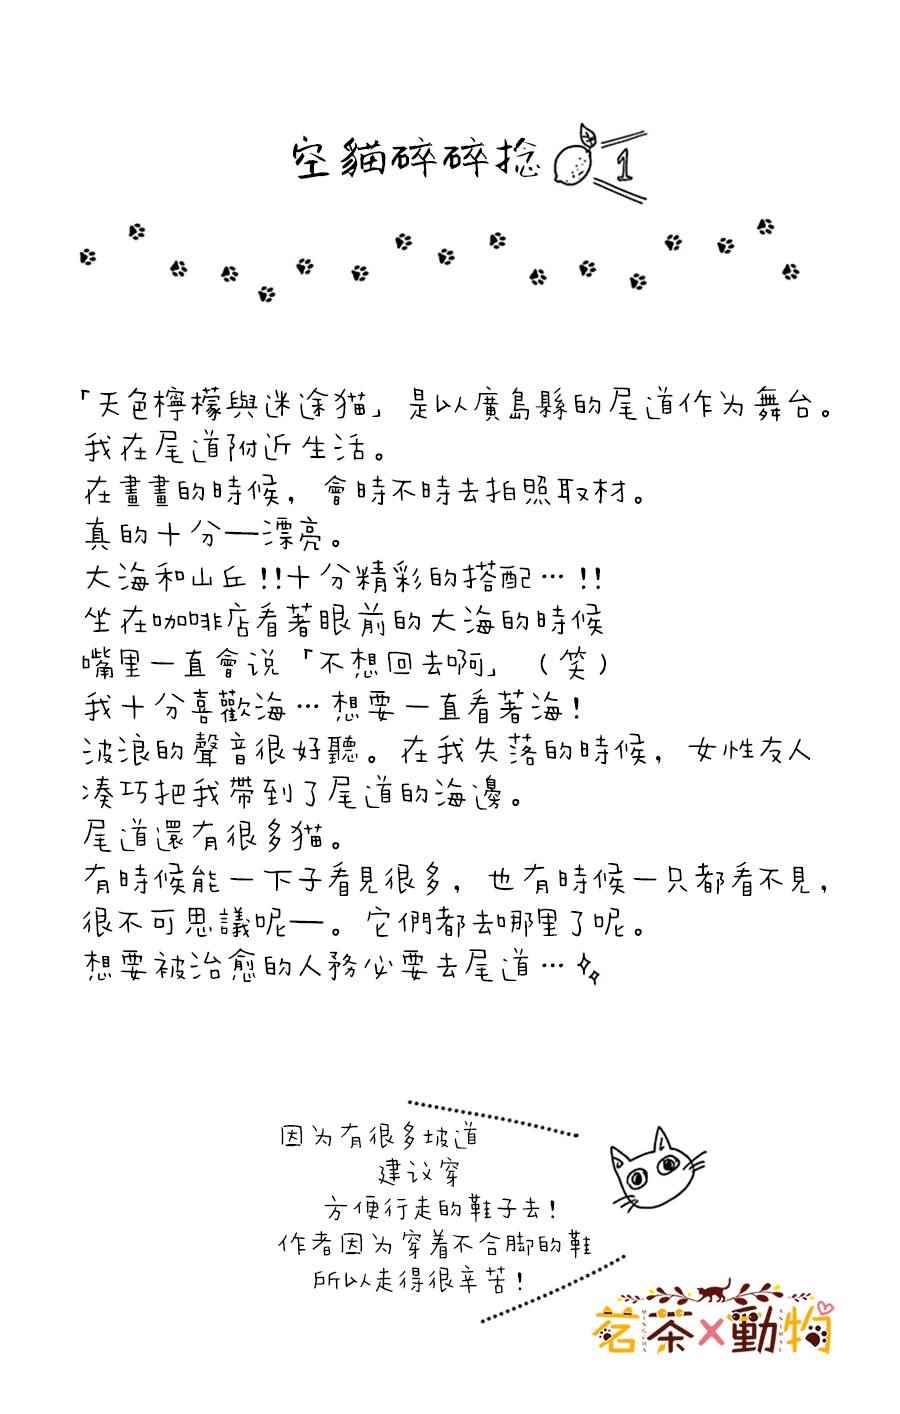 空貓碎碎捻 1
「天色檸檬與迷途猫」是以廣島縣的尾道作为舞台。
我在尾道附近生活。
在畫畫的時候，會時不時去拍照取材。
真的十分—漂亮。
大海和山丘!!十分精彩的搭配…!!
坐在咖啡店看著眼前的大海的時候
嘴里一直會说「不想回去啊」（笑）
我十分喜歡海…想要一直看著海!
波浪的聲音很好聽。在我失落的時候，女性友人
凑巧把我帶到了尾道的海邊。
尾道還有很多猫。
有時候能一下子看見很多，也有時候一只都看不見，
很不可思議呢—。它們都去哪里了呢。
想要被治愈的人務必要去尾道…
因为有很多坡道
建议穿
方便行走的鞋子去!
作者因为穿着不合脚的鞋
所以走得很辛苦!
茗茶×動物